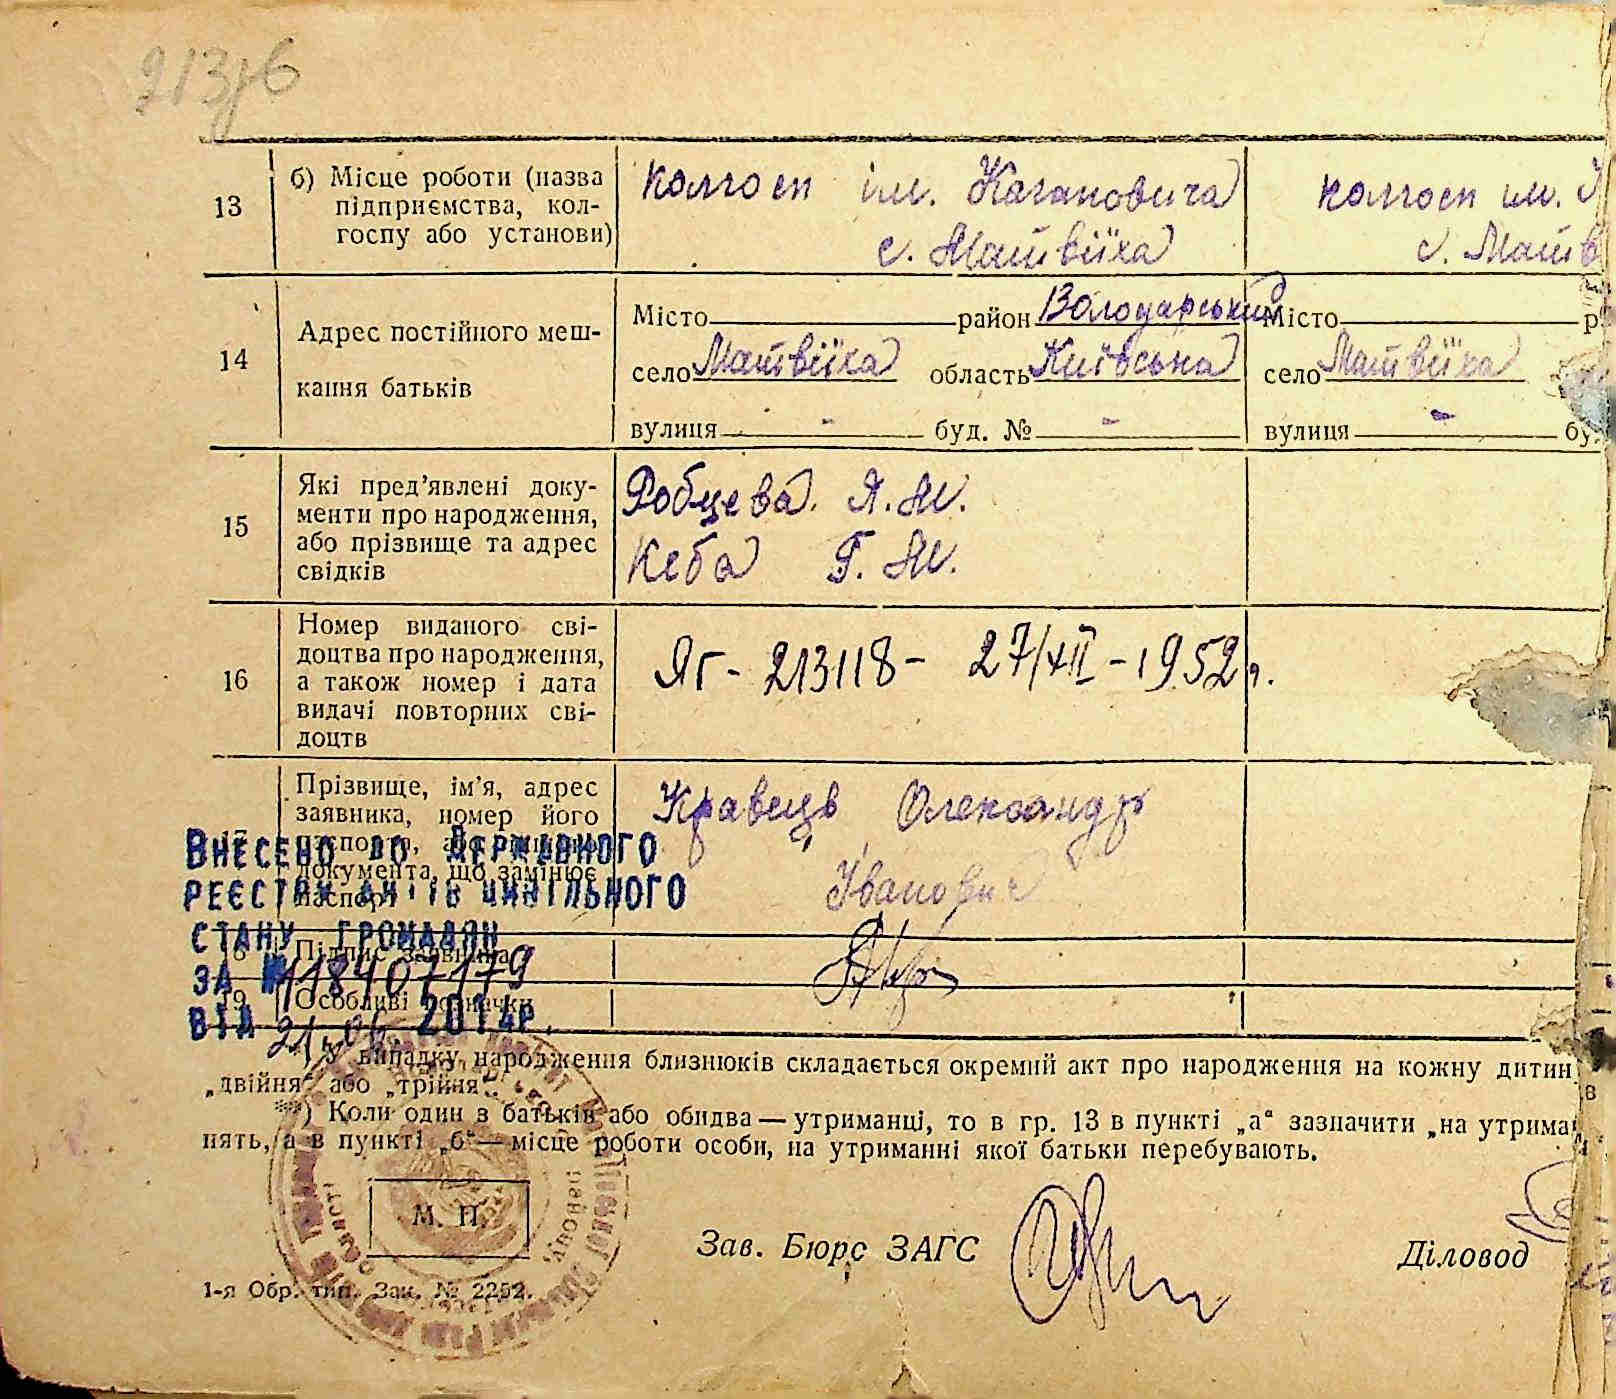 213
13 б) Місце роботи (назва підприємства, кол-
госпу або установи)
колгосп ім. Кагановича
с. Матвіїха
колгосп ім.
с. Матв
14 Адрес постійного меш-
кання батьків
Місто район Володарський
село Матвіїха область Київська
вулиця - буд. № -
Місто р
село Матвіїха
вулиця - бу
15 Які пред’явлені доку-
менти про народження,
або прізвище та адрес
свідків
Робцева Я. М.
Кеба Г. М.
16 Номер виданого сві-
доцтва про народження,
а також номер і дата
видачі повторних сві-
доцтв
ЯГ - 213118 - 27/XII - 1952 р.
Прізвище, ім’я, адрес
заявника, номер його
паспорта,
документа, що замінює
паспорт
Кравець Олександр
Іванович
18 Підпис заявника
19 Особливі позначки
Внесено до Державного
реєстру актів цивільного
стану громадян
за № 118407179
від 21.06. 2014р.
*) У випадку народження близнюків складається окремий акт про народження на кожну дитин
„двійня“ або „трійня“.
**) Коли один з батьків або обидва — утриманці, то в гр. 13 в пункті „а“ зазначити „на утрима
нять, а в пункті „б“ — місце роботи особи, на утриманні якої батьки перебувають.
М. П.
Зав. Бюро ЗАГС
Діловод
1-я Обр. тип. Зак. № 2252.